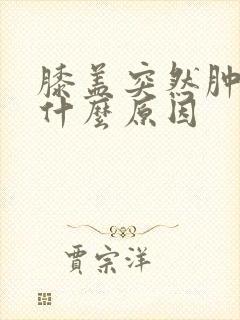 膝盖突然肿
什麼原因
贾宗洋